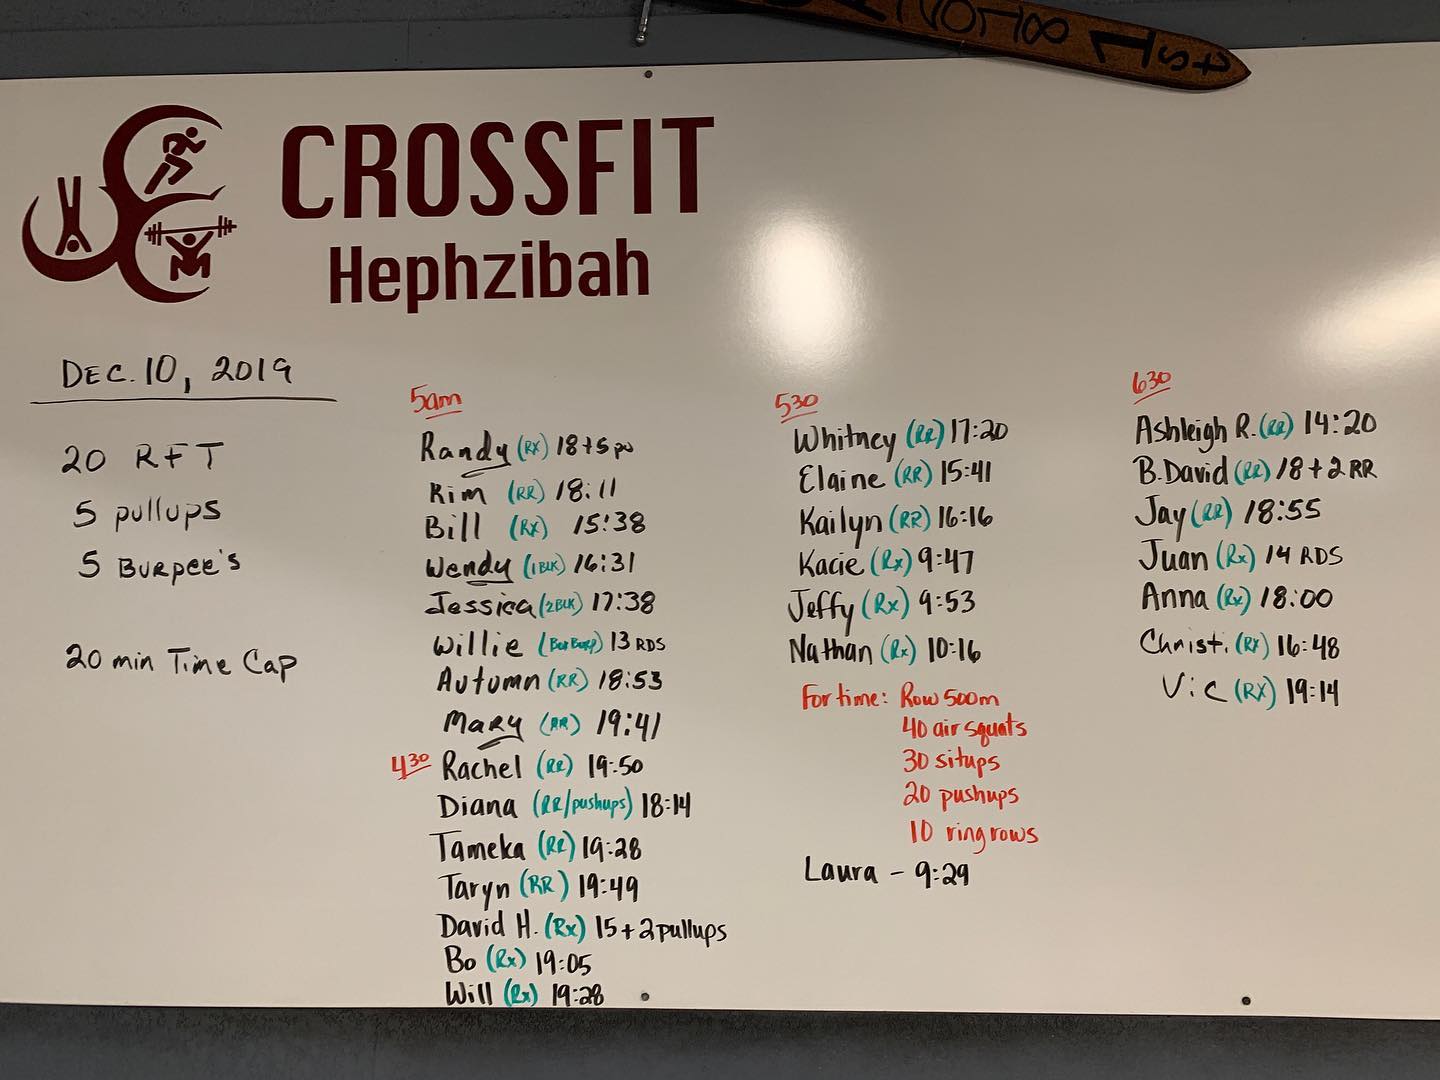 1st
CROSSFIT
Hephzibah
DEC. 10, 2019
20 RFT
5 pullups
5 Burpee's
20 min Time Cap
5am
Randy (RX) 18+5 pu
Kim (RR) 18:11
Bill (RX) 15:38
Wendy (1 BLK) 16:31
Jessica (2 BLK) 17:38
Willie 13 RDS
Autumn (RR) 18:53
Mary (RR) 19:41
4:30
Rachel (RR) 19:50
Diana (RR/pushups) 18:14
Tameka (RR) 19:28
Taryn (RR) 19:49
David H. (Rx) 15+2 pullups
Bo (Rx) 19:05
Will (Rx) 19:28
530
Whitney (RR) 17:20
Elaine (RR) 15:41
Kailyn (RR) 16:16
Kacie (Rx) 9:47
Jeffy (Rx) 9:53
Nathan (Rx) 10:16
For time: Row 500m
40 air squats
30 situps
20 pushups
10 ring rows
Laura - 9:29
630
Ashleigh R. (RR) 14:20
B. David (RR) 18+2 RR
Jay (RR) 18:55
Juan (Rx) 14 RDS
Anna (Rx) 18:00
Christi (RX) 16:48
Vic (RX) 19:14